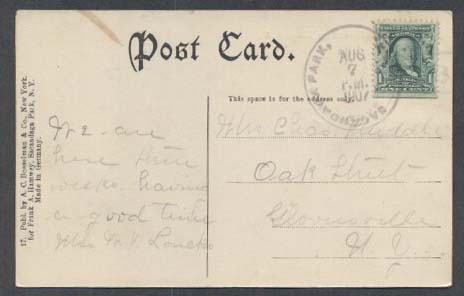 Post Card.
SACANDAGA PARK,
AUG
7
P.M.
1907
1
This space is for the address only.
We are
here three
weeks. having
a good time
Mrs
Mrs Chas
Oak Street
Gloversville
N. Y.
17. Publ. by A. C. Bosselman & Co., New York.
for Frank A. Hamwey, Sacandaga Park, N. Y.
Made in Germany.